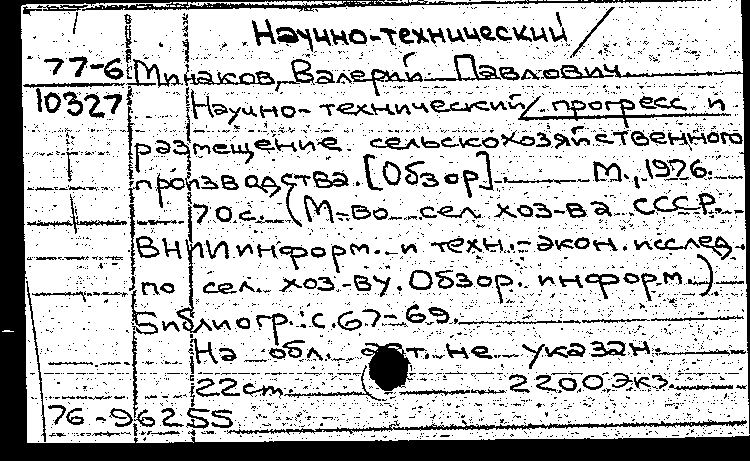 Научно-технический/
77-6 Минаков, Валерий Павлович.
10327 Научно-технический/ прогресс и
размещение сельскохозяйственного
производства. [Обзор]. М., 1976.
70 с. (М-во сел. хоз-ва СССР.
ВНИИинформ. и техн.-экон. исслед.
по сел. хоз-ву. Обзор. информ.)
Библиогр.: с. 67-69.
На обл. авт. не указан.
22 см. 2200 экз.
76-96255